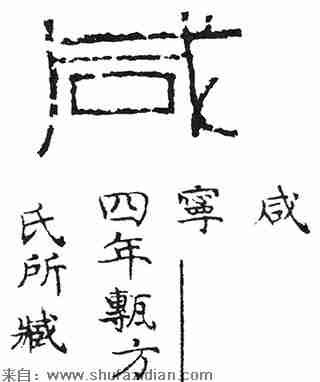 咸
咸
寧
四年甎方
氏所臧
来自：www.shufazidian.com